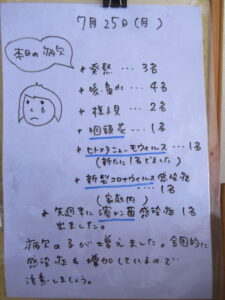 7月25日(月)
本日の病欠
＊発熱… 3名
＊咳・鼻水… 4名
＊様子見… 2名
＊咽頭炎… 1名
＊ヒトメタニューモウイルス… 1名
(新たに1名でました)
＊新型コロナウイルス感染症
…. 1名
(家庭内)
＊先週末に溶レン菌感染症1名
出ました。
病欠の子が増えました。全国的に
感染症も増加しているので
注意しましょう。